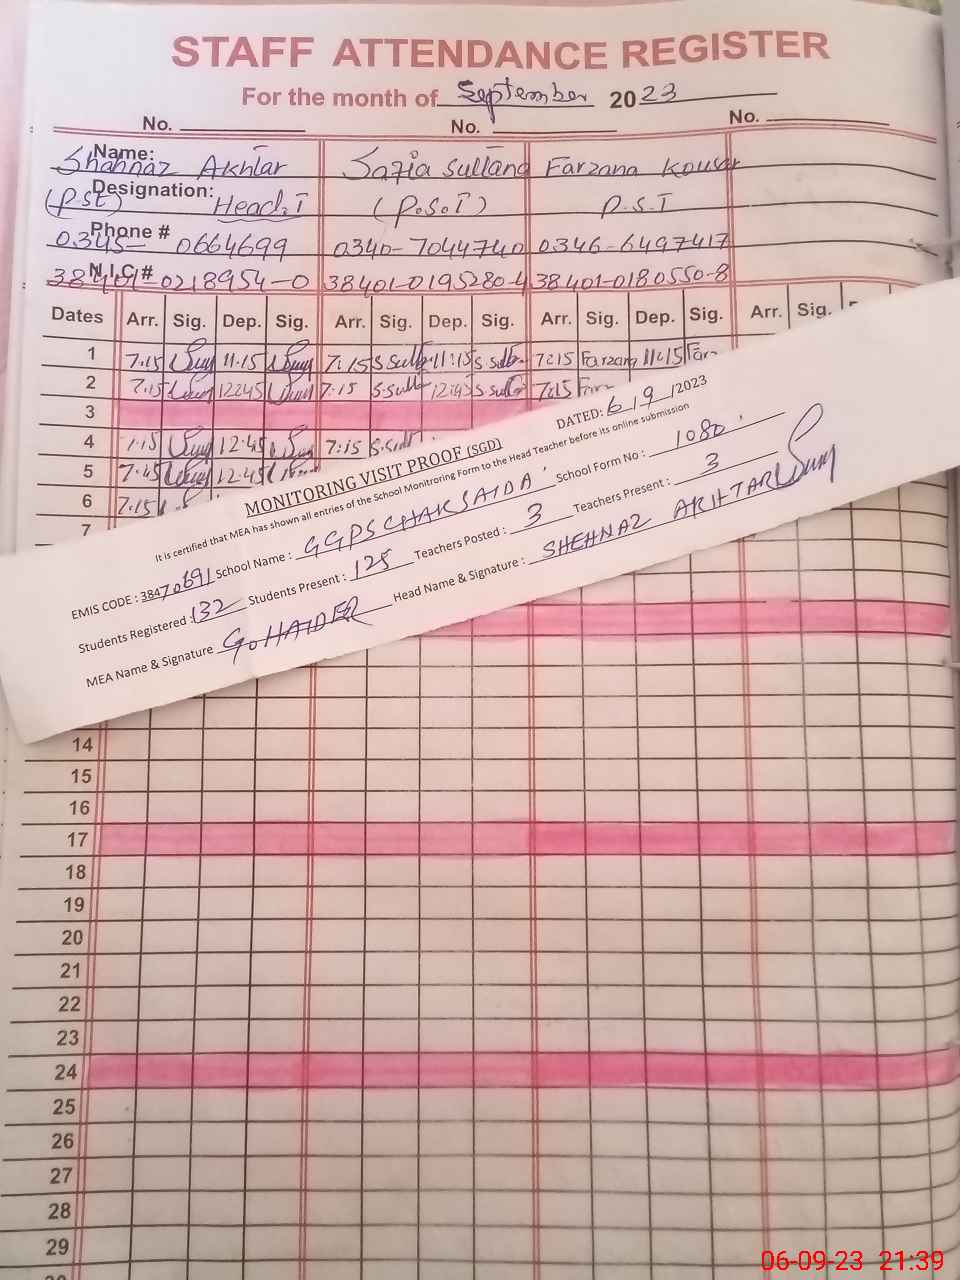 STAFF ATTENDANCE REGISTER
For the month of September 2023
No. No. No.
Name: Shahnaz Akhtar Sazia Sultana Farzana Kousar
Designation: (PST) Head.T (P.S.T) P.S.T
Phone # 0345-0664699 0340-7044740 0346-6497417
N.I.C # 38401-0218954-0 38401-0195280-4 38401-0180550-8
Dates Arr. Sig. Dep. Sig. Arr. Sig. Dep. Sig. Arr. Sig. Dep. Sig. Arr. Sig.
1 7.15 11.15 7.15 S.Sult 11:15 S.Sult 7:15 Farzana 11:15 Far
2 7.15 12:45 7:15 S.Sult 12:45 S.Sult 7:15 Far
3
4 7.15 12.45 7:15 S.Sult
5 7.45 12.45
6 7.15
7
MONITORING VISIT PROOF (SGD) DATED: 6/9/2023
It is certified that MEA has shown all entries of the School Monitroring Form to the Head Teacher before its online submission
EMIS CODE : 38470691 School Name : GGPS CHAK SAIDA School Form No : 1080
Students Registered : 132 Students Present : 125 Teachers Posted : 3 Teachers Present : 3
MEA Name & Signature G. HAIDER Head Name & Signature : SHEHNAZ AKHTAR
14
15
16
17
18
19
20
21
22
23
24
25
26
27
28
29
06-09-23 21:39